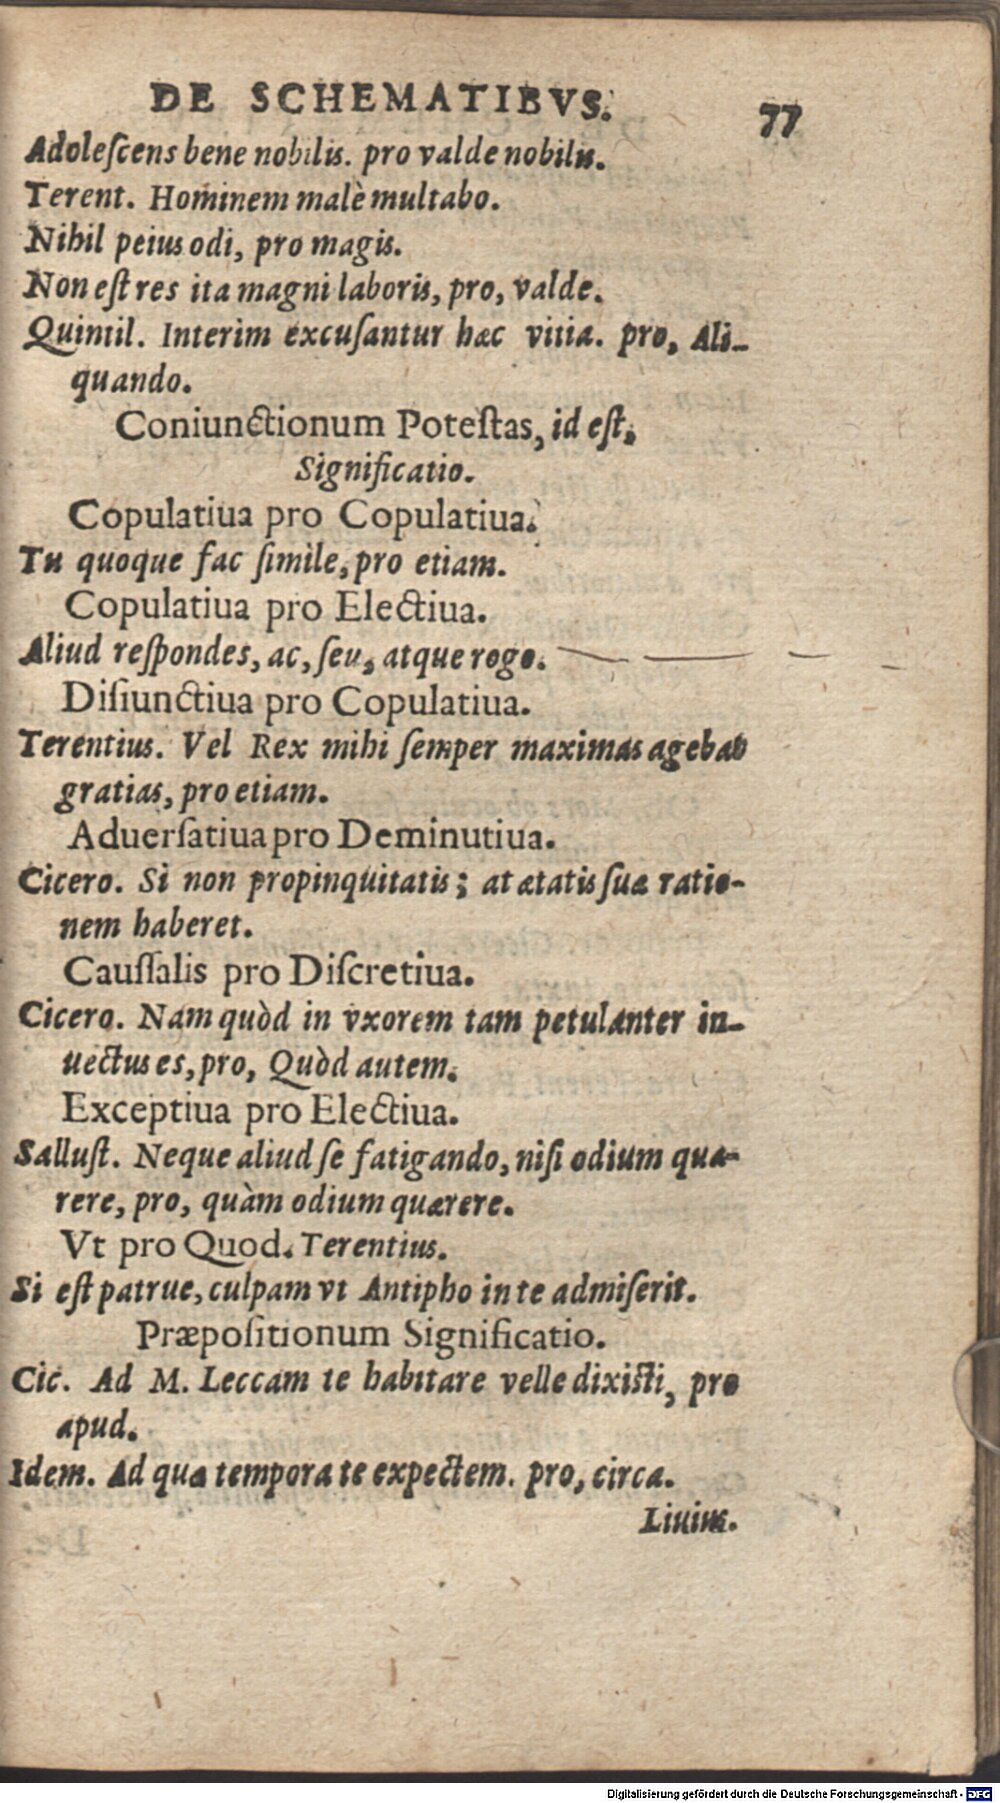 DE SCHEMATIBVS. 77
Adoleſcens bene nobilis. pro valde nobilis.
Terent. Hominem malè multabo.
Nihil peius odi, pro magis.
Non eſt res ita magni laboris, pro, valde.
Quintil. Interim excuſantur hæc vitia. pro, Ali-
quando.
Coniunctionum Poteſtas, id eſt,
Significatio.
Copulatiua pro Copulatiua.
Tu quoque fac ſimile, pro etiam.
Copulatiua pro Electiua.
Aliud reſpondes, ac, ſeu, atque rogo.
Diſiunctiua pro Copulatiua.
Terentius. Vel Rex mihi ſemper maximas agebat
gratias, pro etiam.
Aduerſatiua pro Deminutiua.
Cicero. Si non propinquitatis; at ætatis ſuæ ratio-
nem haberet.
Cauſſalis pro Diſcretiua.
Cicero. Nam quòd in vxorem tam petulanter in-
uectus es, pro, Quòd autem.
Exceptiua pro Electiua.
Salluſt. Neque aliud ſe fatigando, niſi odium quæ-
rere, pro, quàm odium quærere.
Vt pro Quod. Terentius.
Si eſt patrue, culpam vt Antipho in te admiſerit.
Præpoſitionum Significatio.
Cic. Ad M. Leccam te habitare velle dixiſti, pro
apud.
Idem. Ad quæ tempora te expectem. pro, circa.
Liuius.
Digitalisierung gefördert durch die Deutsche Forschungsgemeinschaft - DFG